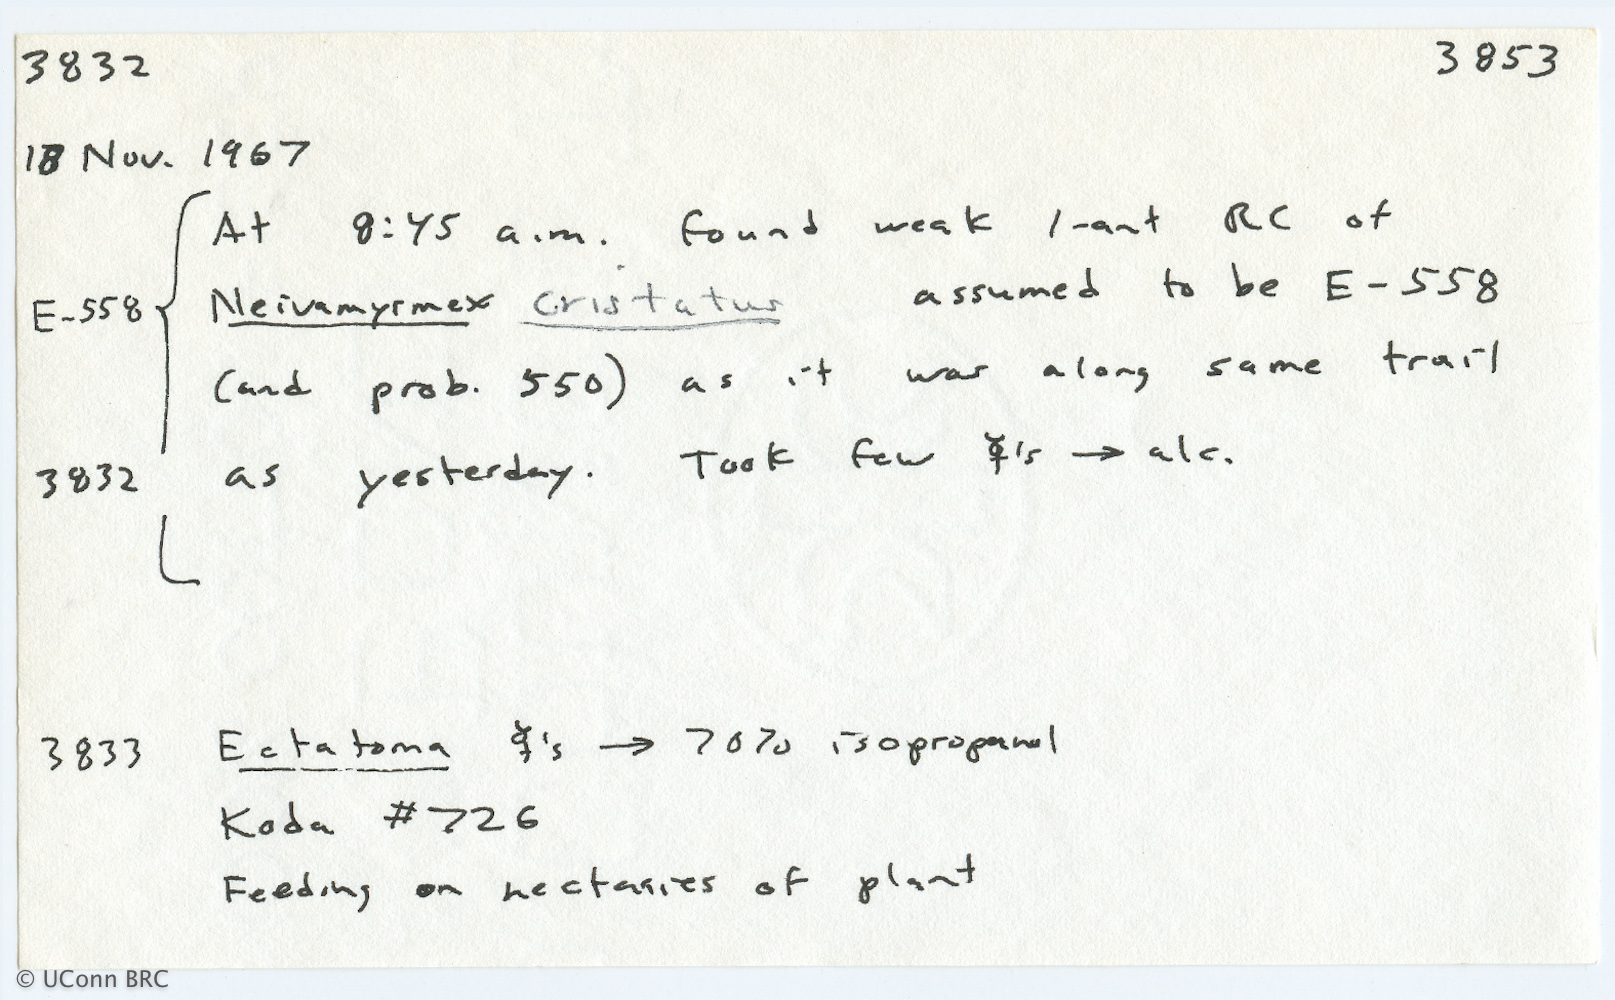 3832 3853
18 Nov. 1967
At 8:45 a.m. found weak 1-ant RC of
E-558 Neivamyrmex cristatus assumed to be E-558
(and prob. 550) as it was along same trail
3832 as yesterday. Took few ☿'s → alc.
3833 Ectatoma ☿'s → 70% isopropanol
Koda #726
Feeding on nectaries of plant
© UConn BRC